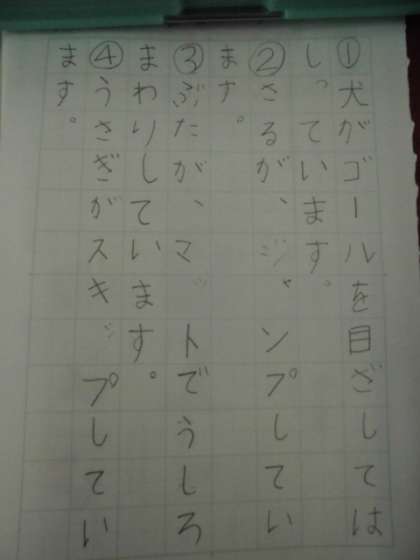 ①犬がゴールを目ざしては
しっています。
②さるが、ジャンプしてい
ます。
③ぶたが、マットでうしろ
まわりしています。
④うさぎがスキップしてい
ます。